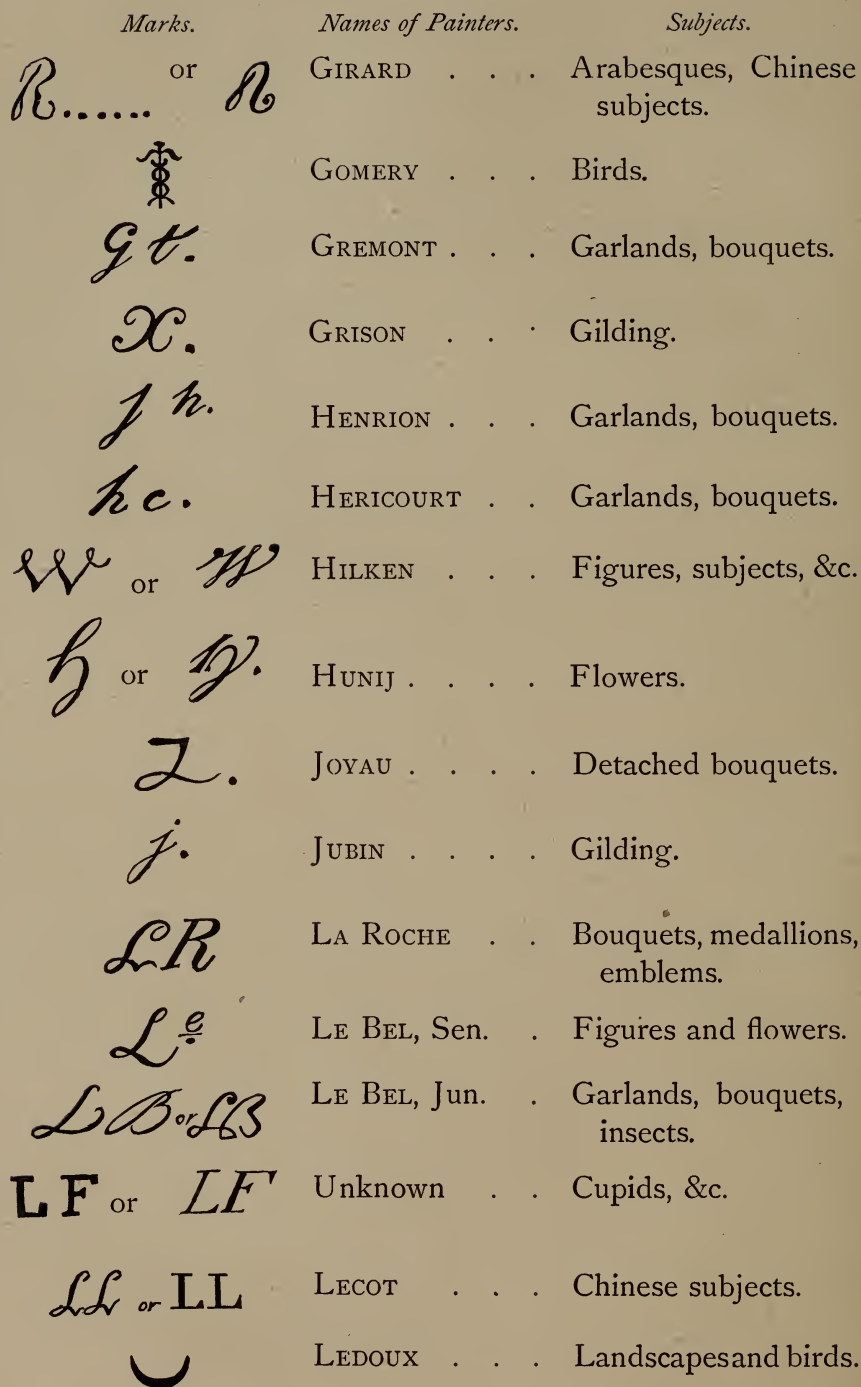 Marks. Names of Painters. Subjects.
R...... or R GIRARD . . . Arabesques, Chinese
subjects.
GOMERY . . . Birds.
Gt. GREMONT . . . Garlands, bouquets.
X. GRISON . . . Gilding.
J h. HENRION . . . Garlands, bouquets.
h c. HERICOURT . . Garlands, bouquets.
W or W HILKEN . . . Figures, subjects, &c.
h or HUNIJ . . . . Flowers.
JOYAU . . . . Detached bouquets.
j. JUBIN . . . . Gilding.
LR LA ROCHE . . Bouquets, medallions,
emblems.
Le LE BEL, Sen. . Figures and flowers.
LB or LB LE BEL, Jun. . Garlands, bouquets,
insects.
LF or LF Unknown . . Cupids, &c.
LL or LL LECOT . . . Chinese subjects.
LEDOUX . . . Landscapes and birds.